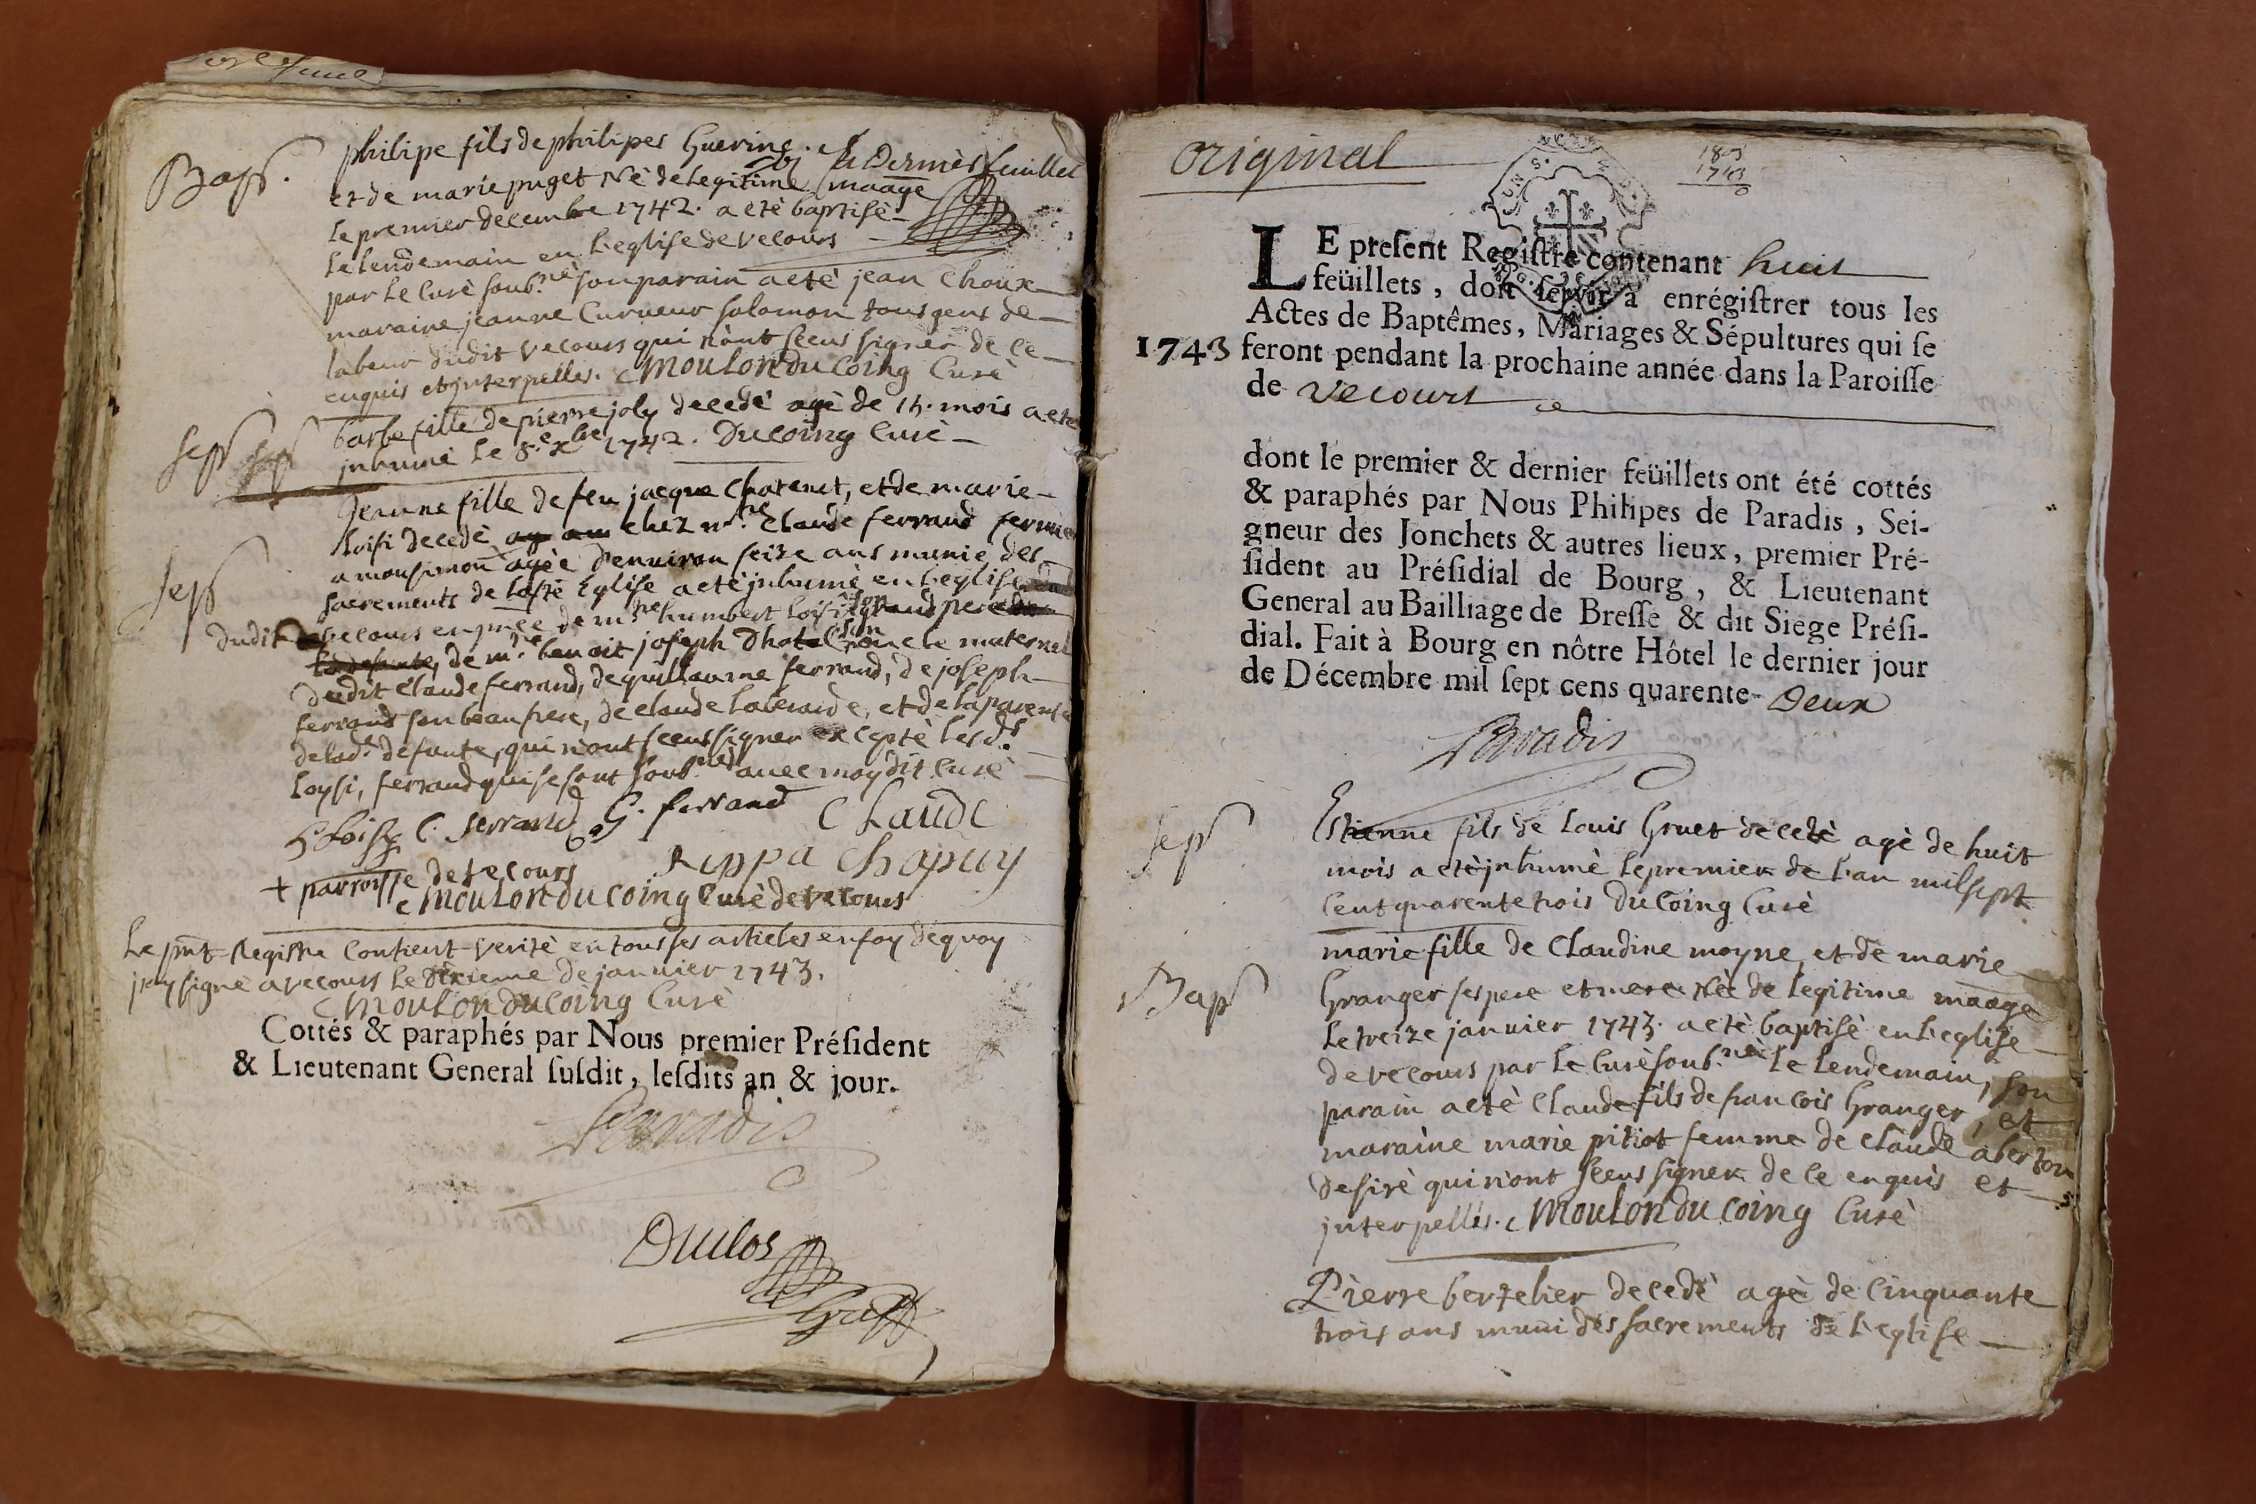 Bapt.
philipe fils de philipes Guerine. & Dernier feuillet
et de marie puget Né de legitime maage
le premier decembre 1742. a etè baptisè
le lendemain en l'eglise de vecours
par le Curè soub.né son parain a etè jean Choux
maraine jeanne Curveur solomon tous gens de
labeur dudit vecours qui n'ont sceus signer de ce
enquis et interpelles. Moulon Du Coing Curè
sep
barbe fille de pierre joly decedè agè de 15. mois a etè
inhumè le 8.e xbre 1742. Ducoing Curè
sep
Jeanne fille de feu jacque Chatenet, et de marie
loisi decedè chez m.re Claude ferrand fermier
a monsimon agèe d'environ seize ans munie des
sacrements de l'eglise a etè inhumè en l'eglise
dudit vecours en pnce de m.re humbert loisi son grand pere
de m.re benoit joseph son oncle maternel
dudit Claude ferrand, de guillaume ferrand, de joseph
ferrand son beau frere, de claude laberarde, et de la parenté
de lad.e defunte, qui n'ont sceus signer excepté lesd.s
loysi, ferrand qui se sont soub.nes avec moy dit Curè
h loisy C. ferrand G. ferrand Claude
+ parroisse de vecours Rippa Chapuy
Moulon Du Coing Curè de vecours
Le pnt Registre Contient verité en tous ses articles en foy dequoy
j'ay signé a vecours le dixieme de janvier 1743.
Moulon Du Coing Curè
Cottés & paraphés par Nous premier Président
& Lieutenant General susdit, lesdits an & jour.
Paradis
Duclos
Greff
original
LE present Registre contenant huit
feüillets, doit servir à enrégistrer tous les
Actes de Baptêmes, Mariages & Sépultures qui se
1743 feront pendant la prochaine année dans la Paroisse
de vecours
dont le premier & dernier feüillets ont été cottés
& paraphés par Nous Philipes de Paradis, Sei-
gneur des Jonchets & autres lieux, premier Pré-
sident au Présidial de Bourg, & Lieutenant
General au Bailliage de Bresse & dit Siege Prési-
dial. Fait à Bourg en nôtre Hôtel le dernier jour
de Décembre mil sept cens quarente- Deux
Paradis
sep
Estienne fils de Louis Gruet decedè agè de huit
mois a etè inhumè le premier de l'an mil sept
Cent quarente trois Du Coing Curè
Bap
marie fille de Claudine moyne et de marie
Granger ses pere et mere Nèe de legitime maage
le treize janvier 1743. a etè baptisè en l'eglise
de vecours par le Curè soub.né le lendemain, son
parain a etè Claude fils de francois Granger, et
maraine marie pitiot femme de claude
desirè qui n'ont sceus signer de ce enquis et
interpellés. Moulon Du Coing Curè
Pierre bertelier decedè agè de Cinquante
trois ans muni des sacrements de l'eglise